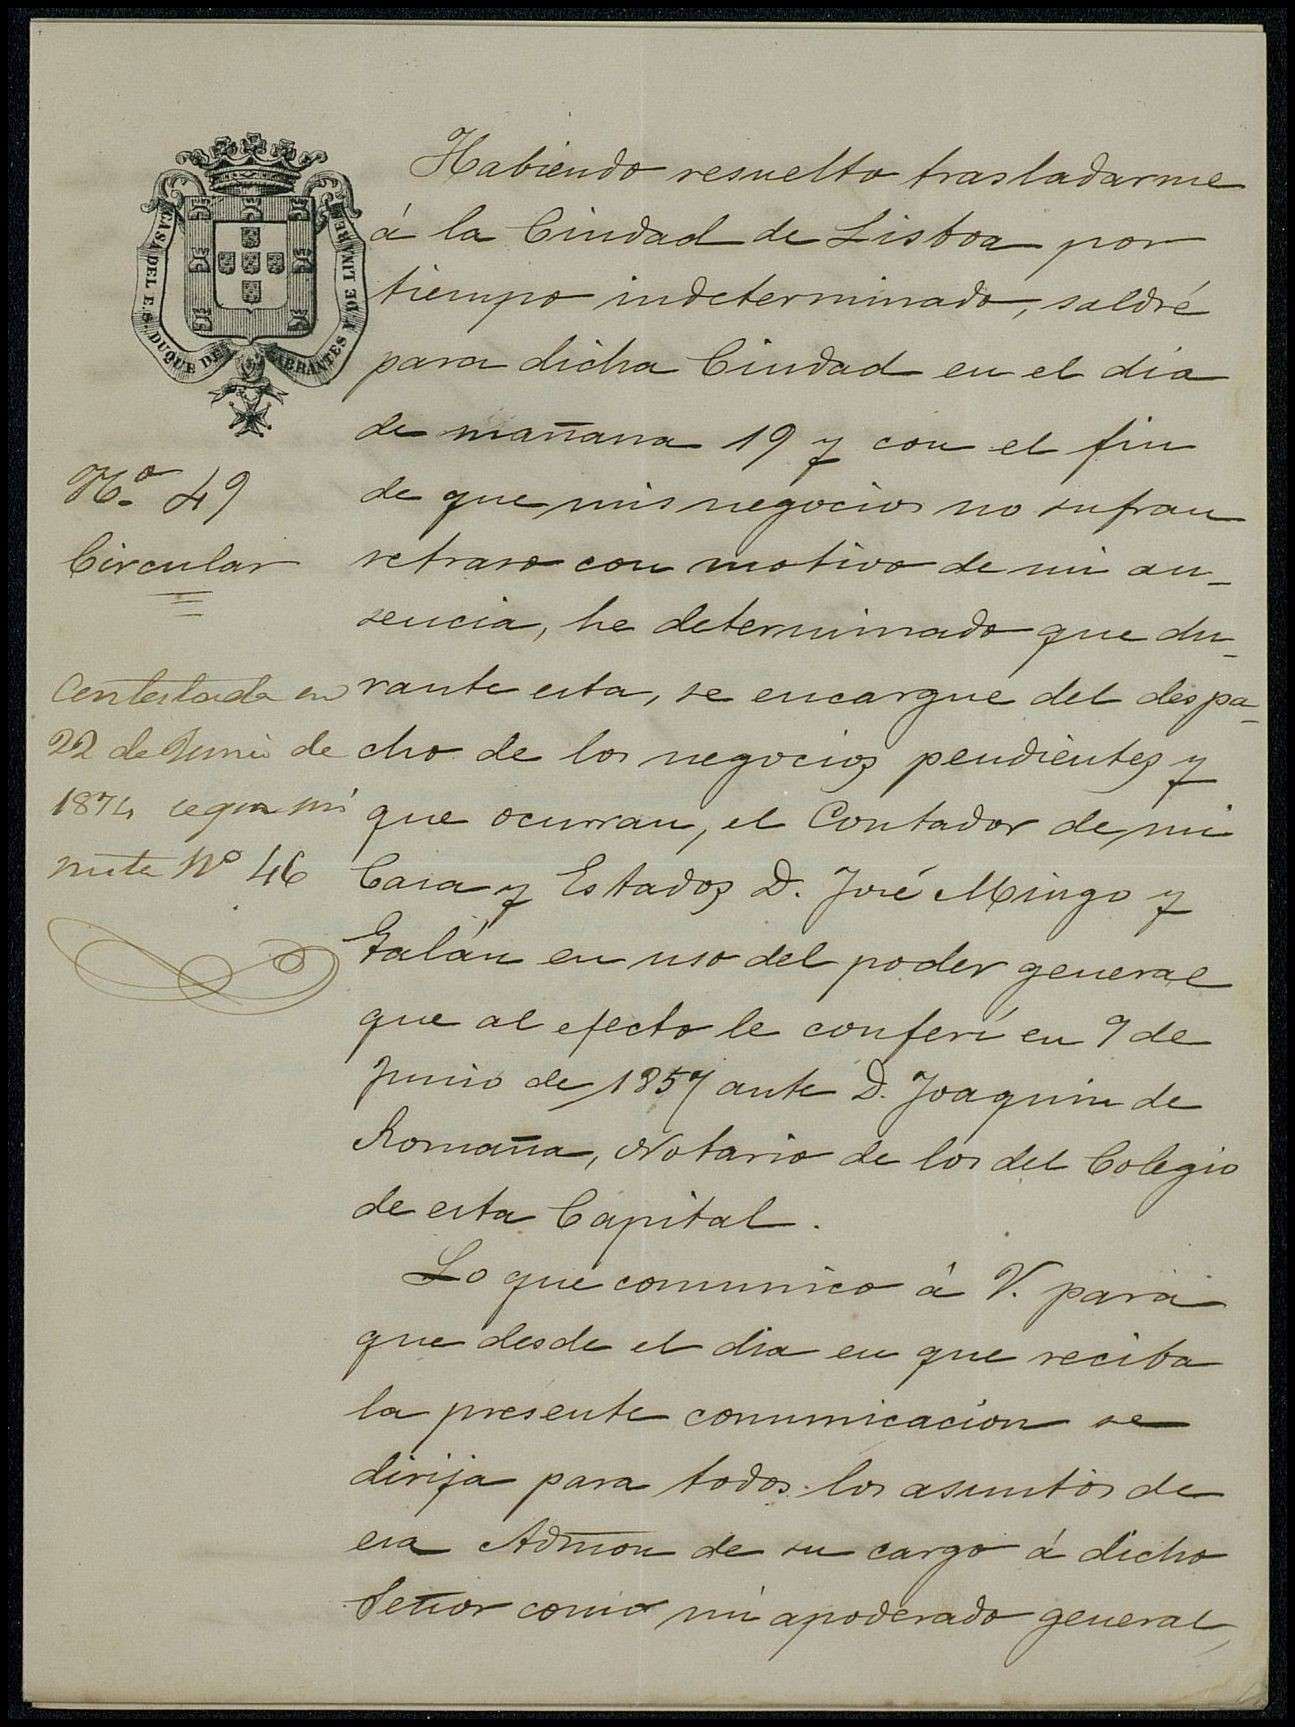 CASA DEL E.S. DUQUE DE ABRANTES Y DE LINARES
Nº 49
Circular
Contestada en
22 de Junio de
1874 segun mi
nuta Nº 46
Habiendo resuelto trasladarme
á la Ciudad de Lisboa por
tiempo indeterminado, saldré
para dicha Ciudad en el dia
de mañana 19 y con el fin
de que mis negocios no sufran
retraso con motivo de mi au-
sencia, he determinado que du-
rante esta, se encargue del despa-
cho de los negocios pendientes y
que ocurran, el Contador de mi
Casa y Estados D. José Mingo y
Galán en uso del poder general
que al efecto le conferí en 9 de
Junio de 1857 ante D. Joaquin de
Romaña, Notario de los del Colegio
de esta Capital.
Lo que comunico á V. para
que desde el dia en que reciba
la presente comunicacion se
dirija para todos los asuntos de
esa Admon de su cargo á dicho
Señor como mi apoderado general,